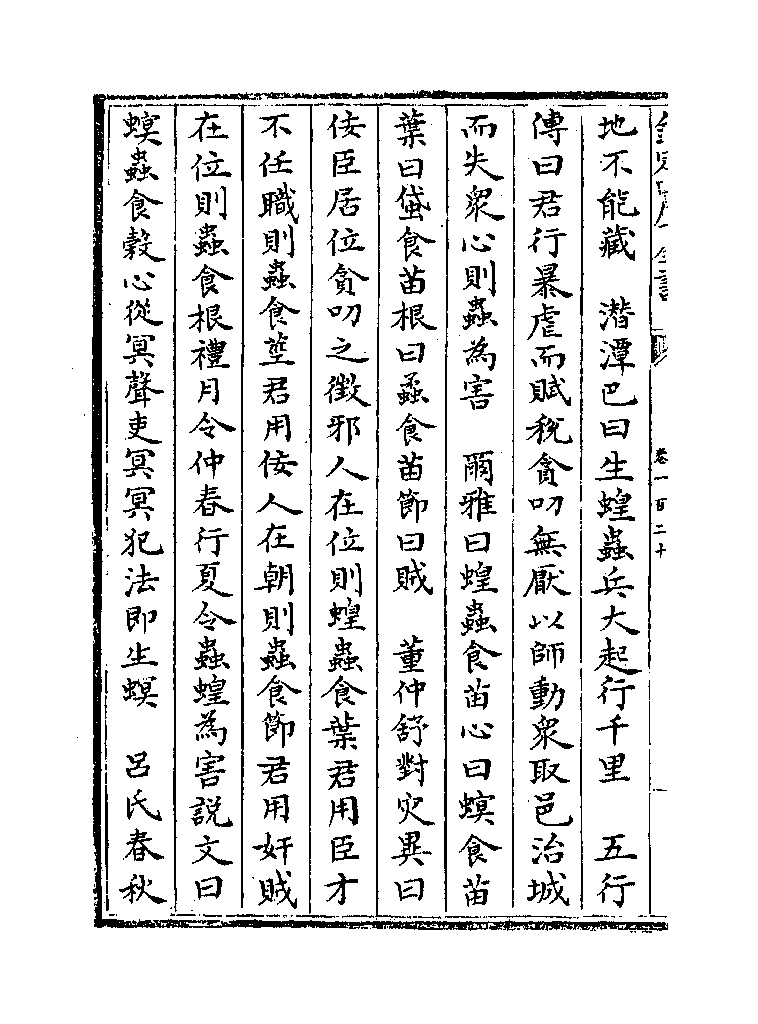 地不能藏　潛潭巴曰生蝗蟲兵大起行千里　五行
傳曰君行暴虐而賦稅貪叨無厭以師動衆取邑治城
而失衆心則蟲為害　爾雅曰蝗蟲食苗心曰螟食苗
葉曰蟘食苗根曰蟊食苗節曰賊　董仲舒對灾異曰
佞臣居位貪叨之徴邪人在位則蝗蟲食葉君用臣才
不任職則蟲食莖君用佞人在朝則蟲食節君用奸賊
在位則蟲食根禮月令仲春行夏令蟲蝗為害説文曰
螟蟲食穀心從冥聲吏冥冥犯法即生螟　呂氏春秋
卷一百二十